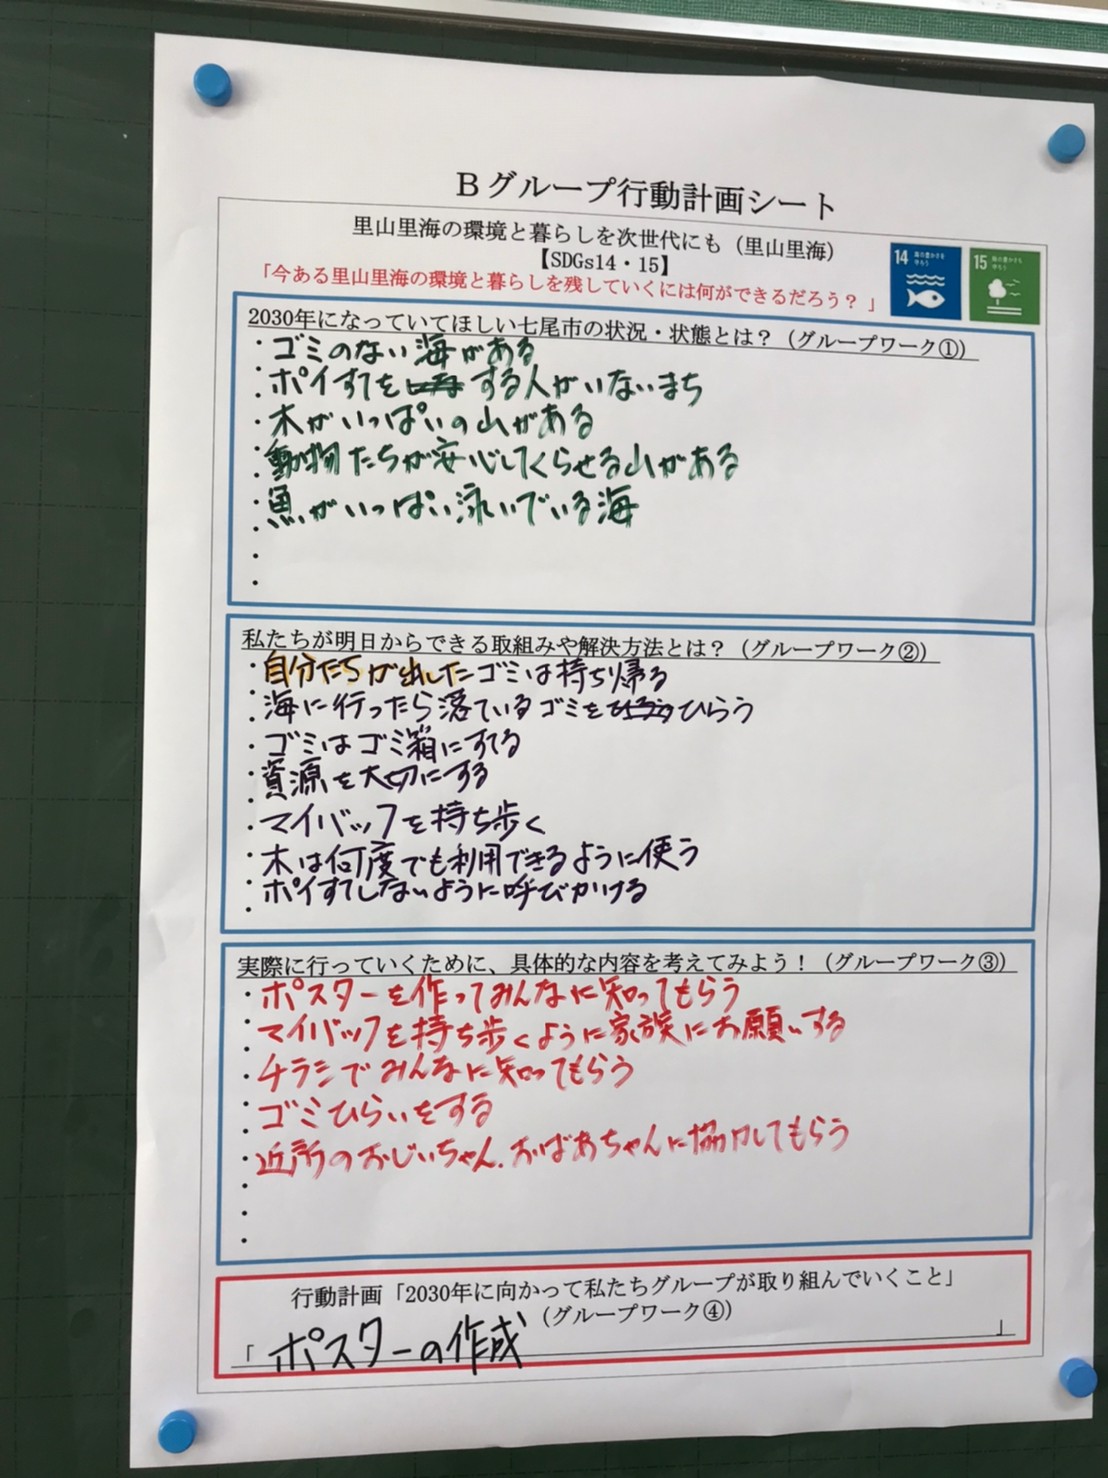 Bグループ行動計画シート
里山里海の環境と暮らしを次世代にも（里山里海）
【SDGs14・15】
「今ある里山里海の環境と暮らしを残していくには何ができるだろう？」
14 海の豊かさを守ろう
15 陸の豊かさも守ろう
2030年になっていてほしい七尾市の状況・状態とは？（グループワーク①）
・ゴミのない海がある
・ポイすてをする人がいないまち
・木がいっぱいの山がある
・動物たちが安心してくらせる山がある
・魚がいっぱい泳いでいる海
・
・
・
私たちが明日からできる取組みや解決方法とは？（グループワーク②）
・自分たちが出したゴミは持ち帰る
・海に行ったら落ているゴミをひらう
・ゴミはゴミ箱にすてる
・資源を大切にする
・マイバッフを持ち歩く
・木は何度でも利用できるように使う
・ポイすてしないように呼びかける
・
実際に行っていくために、具体的な内容を考えてみよう！（グループワーク③）
・ポスターを作ってみんなに知ってもらう
・マイバッフを持ち歩くように家族にお願いする
・チラシでみんなに知ってもらう
・ゴミひらいをする
・近所のおじいちゃん、おばあちゃんに協力してもらう
・
・
・
行動計画「2030年に向かって私たちグループが取り組んでいくこと」
（グループワーク④）
「ポスターの作成」